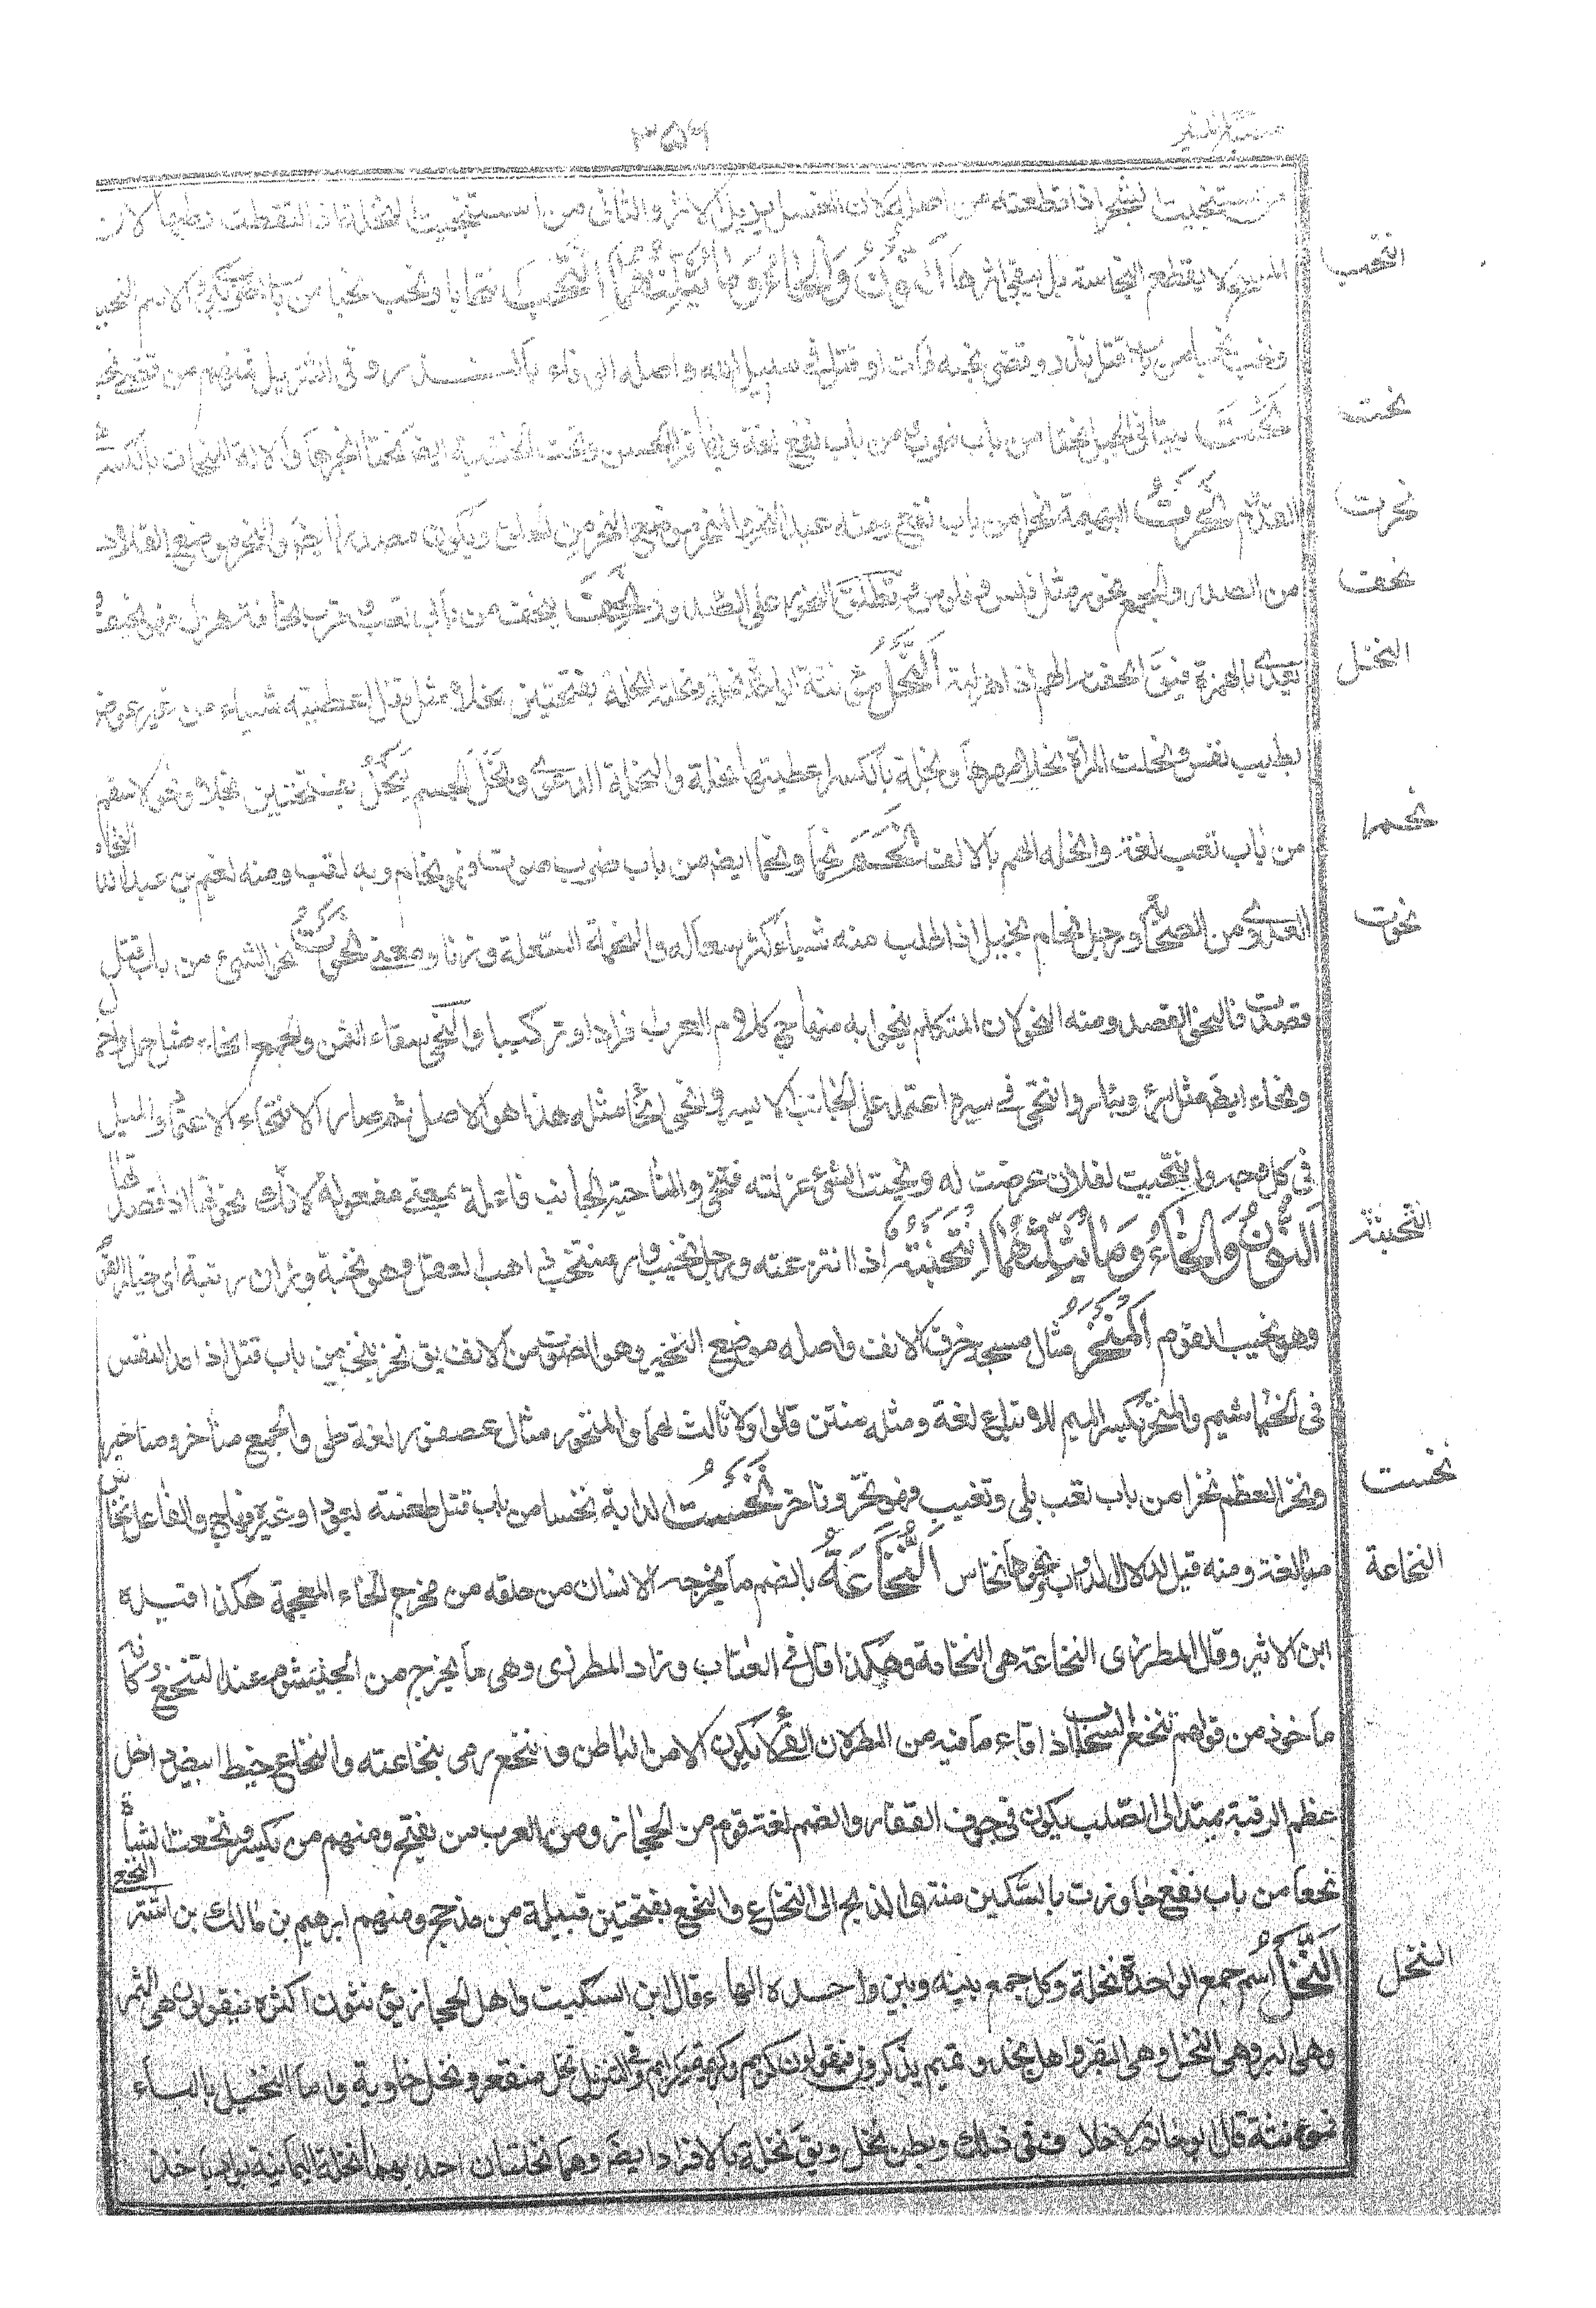 مصباح المنير
٣٥٦
من استنجيت الشجر اذا قطعته من اصله لان الغسل يزيل الاثر والثانى من استنجيت النخلة اذا التقطت رطبها لان
النحب
المسح لا يقطع النجاسة بل يبقى اثرها اَلنُّوْنُ وَالْحَاءُ وَمَا يُثَلِّثُهُمَا نحب نحبا من باب الاسم النحيب
ونحب نحبا من باب قتل نذر وقضى نحبه مات او قتل فى سبيل الله واصله الوفاء بالنذر وفى التنزيل فمنهم من قضى نحبه
نحت
نَحَتَ بيتا فى الجبل نحتا من باب ضرب ومن باب نفع لغة وبها قرأ الحسن ونحت الخشبة ايضا نحتا نجرها والالة المنحات بالكسر
نحرت
القدوم نَحَرْتُ البهيمة نحرا من باب نفع ومنه عيد النحر والمنحر موضع النحر من الحلق ويكون مصدرا ايضا والنحر موضع القلادة
نحف
من الصدر والجمع نحور مثل فلس وفلوس وتطلق النحور على الصدور نَحِفَ ينحف من بابى تعب وقرب نحافة هزل فهو نحيف و
النحل
يعدى بالهمزة فيق انحفه الهم اذا هزله اَلنَّحْلُ مؤنثة الواحدة نحلة ونحلته انحله بفتحتين نحلا مثل قفل اعطيته شيئا من غير عوض
بطيب نفس ونحلت المراة نحلا مهرها ونحلة بالكسر اعطيتها نحلة والنحلة الدعوى ونحل الجسم يَنْحَلُ بفتحتين نحولا سقم
نحم
من باب تعب لغة وانحله الهم بالالف نَحَمَ نحما ونحيما ايضا من باب ضرب صوت فهو نحام وبه لقب ومنه نعيم بن عبد الله
النحام
نحوت
العدوى من الصحابة ورجل نحام بخيل اذا طلب منه شيئا كثر سعاله والنحمة السعلة وزنا ومعنى نَحَوْتُ نحو الشئ من باب قتل
قصدت فالنحو القصد ومنه النحو لان المتكلم ينحو به منهاج كلام العرب فرادا وتركيبا والنحى سقاء السمن والجمع انحاء مثل حمل واحمال
ونحاء ايضا مثل بئر وبئار وانتحى فى سيره اعتمد على الجانب الايسر وانحى انحاء مثله هذا هو الاصل ثم صار الانتحاء الاعتماد والميل
فى كل وجه وانتحيت لفلان عرضت له ونحيت الشئ عزلته فتنحى والناحية الجانب فاعلة بمعنى مفعولة لانك نحوتها اذا قصدتها
النخبة
اَلنُّوْنُ وَالْخَاءُ وَمَا يُثَلِّثُهُمَا اِنْتَخَبْتُهُ اذا انتزعته ورجل نخيب ومنتخب ذاهب العقل وهو نخبة وزان رتبة اى خيار القوم
وهو نخيب القوم اَلْمَنْخِرُ مثال مسجد خرق الانف واصله موضع النخير وهو الصوت من الانف يق نخر ينخر من باب قتل اذا مد النفس
فى الخياشيم والمنخر بكسر الميم للاتباع لغة ومثله منتن قالوا ولا ثالث لهما والمنخور مثال عصفور لغة طى والجمع مناخر ومناخير
نخست
ونخر العظم نخرا من باب تعب بلى وتغيب فهو نخر وناخر نَخَسْتُ الدابة نخسا من باب قتل طعنته بعود او غيره فهاج والفاعل نخاس
النخاعة
مبالغة ومنه قيل لدلال الدواب ونحوها نخاس اَلنُّخَاعَةُ بالضم ما يخرجه الانسان من حلقه من مخرج الخاء المعجمة هكذا قيده
ابن الاثير وقال المطرزى النخاعة هى النخامة وهكذا قال فى العباب وزاد المطرزى وهى ما يخرج من الخيشوم عند التنخع وكانه
ماخوذ من قولهم تنخع السحاب اذا قاء ما فيه من المطر لان القئ لا يكون الا من الباطن وتنخع رمى بنخاعته والنخاع خيط ابيض داخل
عظم الرقبة يمتد الى الصلب يكون فى جوف الفقار والضم لغة قوم من الحجاز ومن العرب من يفتح ومنهم من يكسر ونخعت الشاة
نخعا من باب نفع جاوزت بالسكين منتهى الذبح الى النخاع والنخع بفتحتين قبيلة من مذحج ومنهم ابرهيم بن مالك بن اشتر
النخعى
النخل
اَلنَّخْلُ اسم جمع الواحدة نخلة وكل جمع بينه وبين واحده الهاء قال ابن السكيت واهل الحجاز يؤنثون اكثره فيقولون هى التمر
وهى البر وهى النخل وهى البقر واهل نجد وتميم يذكرون فيقولون كريم وكريمة وكرايم وفى التنزيل نخل منقعر ونخل خاوية واما النخيل بالياء
فمؤنثة قال ابو حاتم لا خلاف فى ذلك وبطن نخل ويق نخلة بالافراد ايضا وهما نخلتان احدهما نخلة اليمانية بواد ياخذ